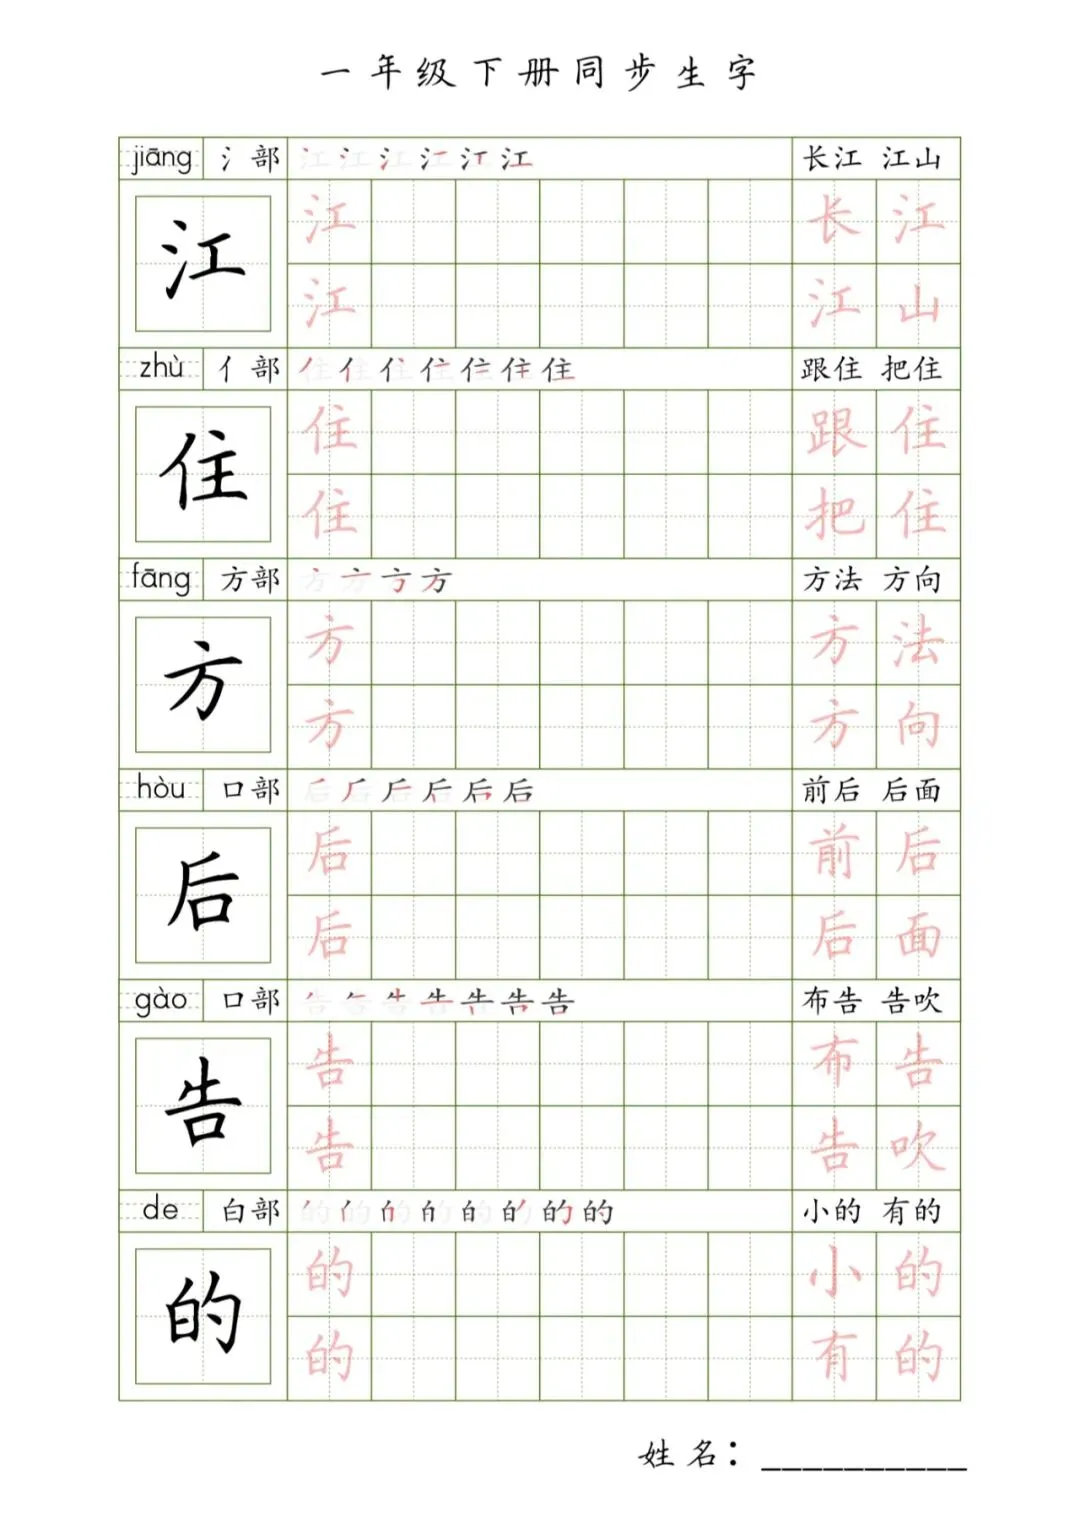 一年级下册同步生字
jiāng 氵部 江江江江江江 长江 江山
江 江 长江
江 江山
zhù 亻部 住住住住住住住 跟住 把住
住 住 跟住
住 把住
fāng 方部 方方方方 方法 方向
方 方 方法
方 方向
hòu 口部 后后后后后后 前后 后面
后 后 前后
后 后面
gào 口部 告告告告告告告 布告 告吹
告 告 布告
告 告吹
de 白部 的的的的的的的的 小的 有的
的 的 小的
的 有的
姓名：__________